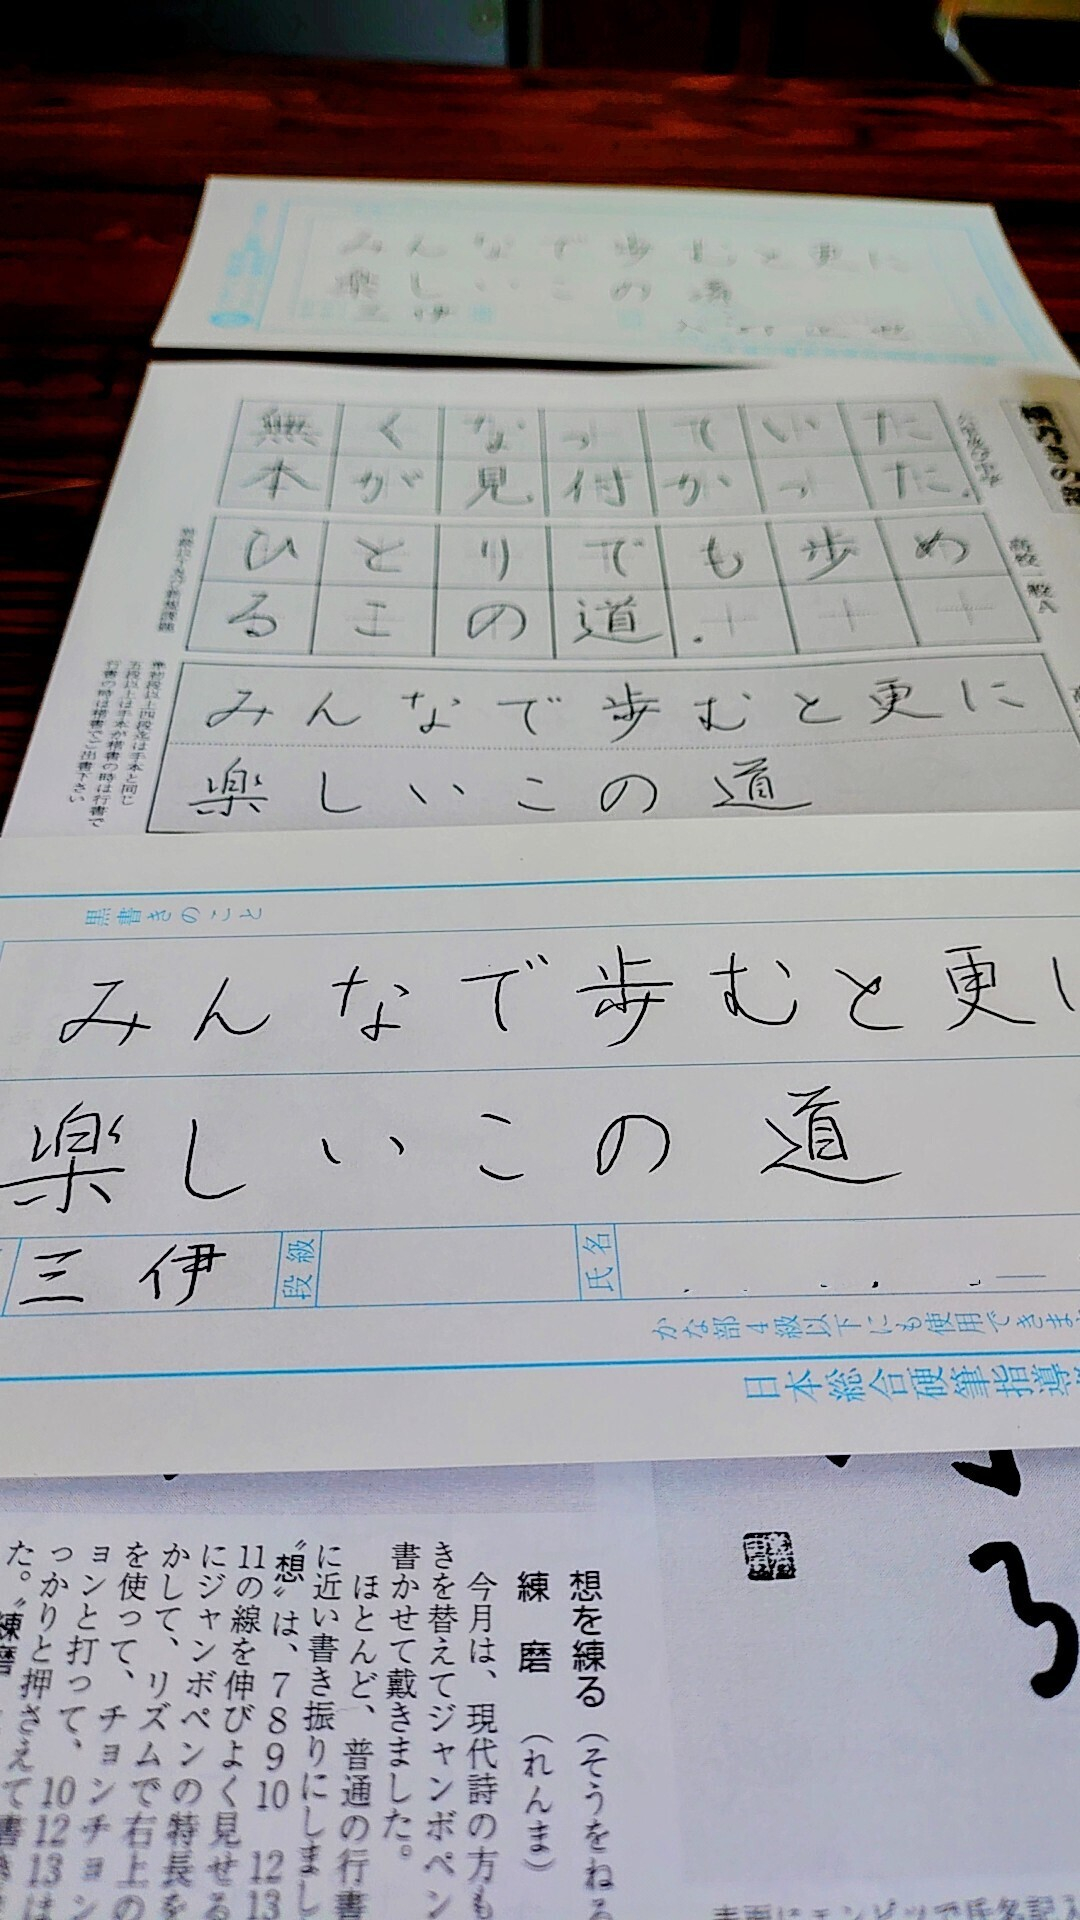 みんなで歩むと更に
楽しいこの道
三伊
無くなっていた
本が見付かった.
ひとりでも歩め
るこの道.
高校一般A
準初段以上四段迄は手本と同じ
五段以上は手本が楷書の時は行書で
行書の時は楷書でご出書下さい
みんなで歩むと更に
楽しいこの道
黒書きのこと
みんなで歩むと更に
楽しいこの道
三伊
段級
氏名
かな部4級以下にも使用できま
日本総合硬筆指導
想を練る(そうをねる
練磨(れんま)
今月は、現代詩の方も
きを替えてジャンボペン
書かせて戴きました。
ほとんど、普通の行書
に近い書き振りにしまし
〝想〟は、7 8 9 10 12 13
11の線を伸びよく見せる
にジャンボペンの特長を
かして、リズムで右上の
を使って、チョンチョン
ョンと打って、10 12 13は
っかりと押さえて書き
た。〝練磨